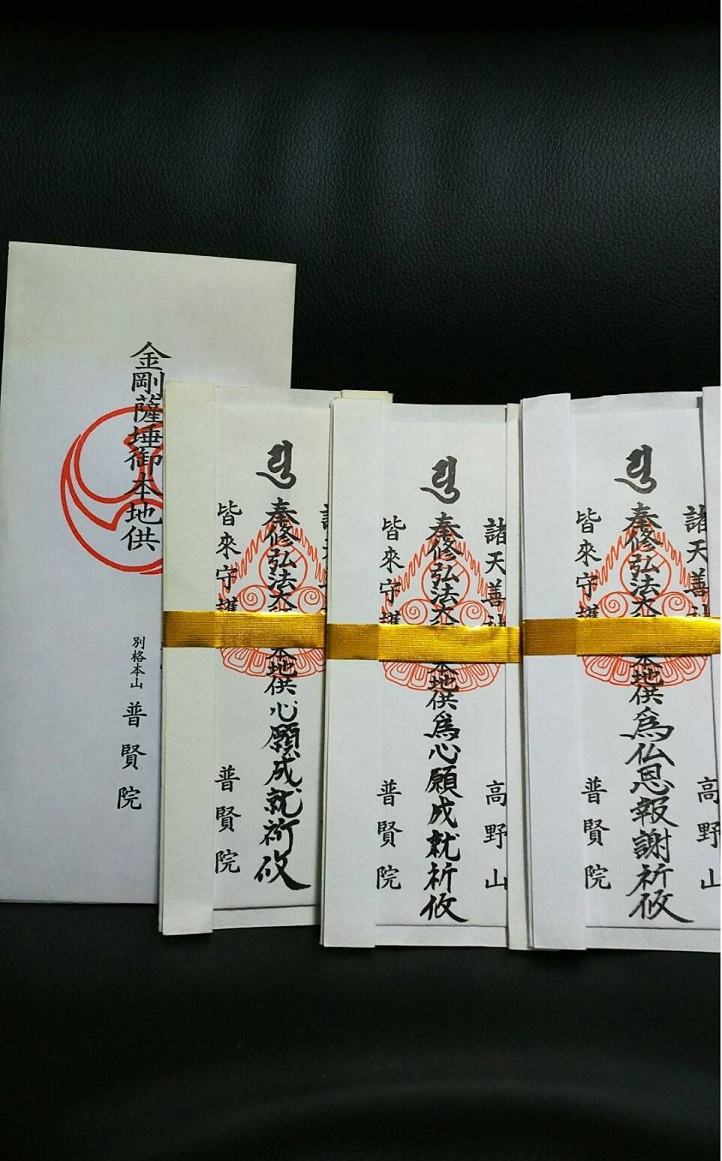 金剛薩埵御本地供
別格本山 普賢院
奉修弘法大 本地供心願成就祈攸
皆來守護
普賢院
諸天善
高野山
奉修弘法大 本地供為心願成就祈攸
皆來守
普賢院
諸天善
高野山
奉修弘法大 本地供為仏恩報謝祈攸
皆來守
普賢院